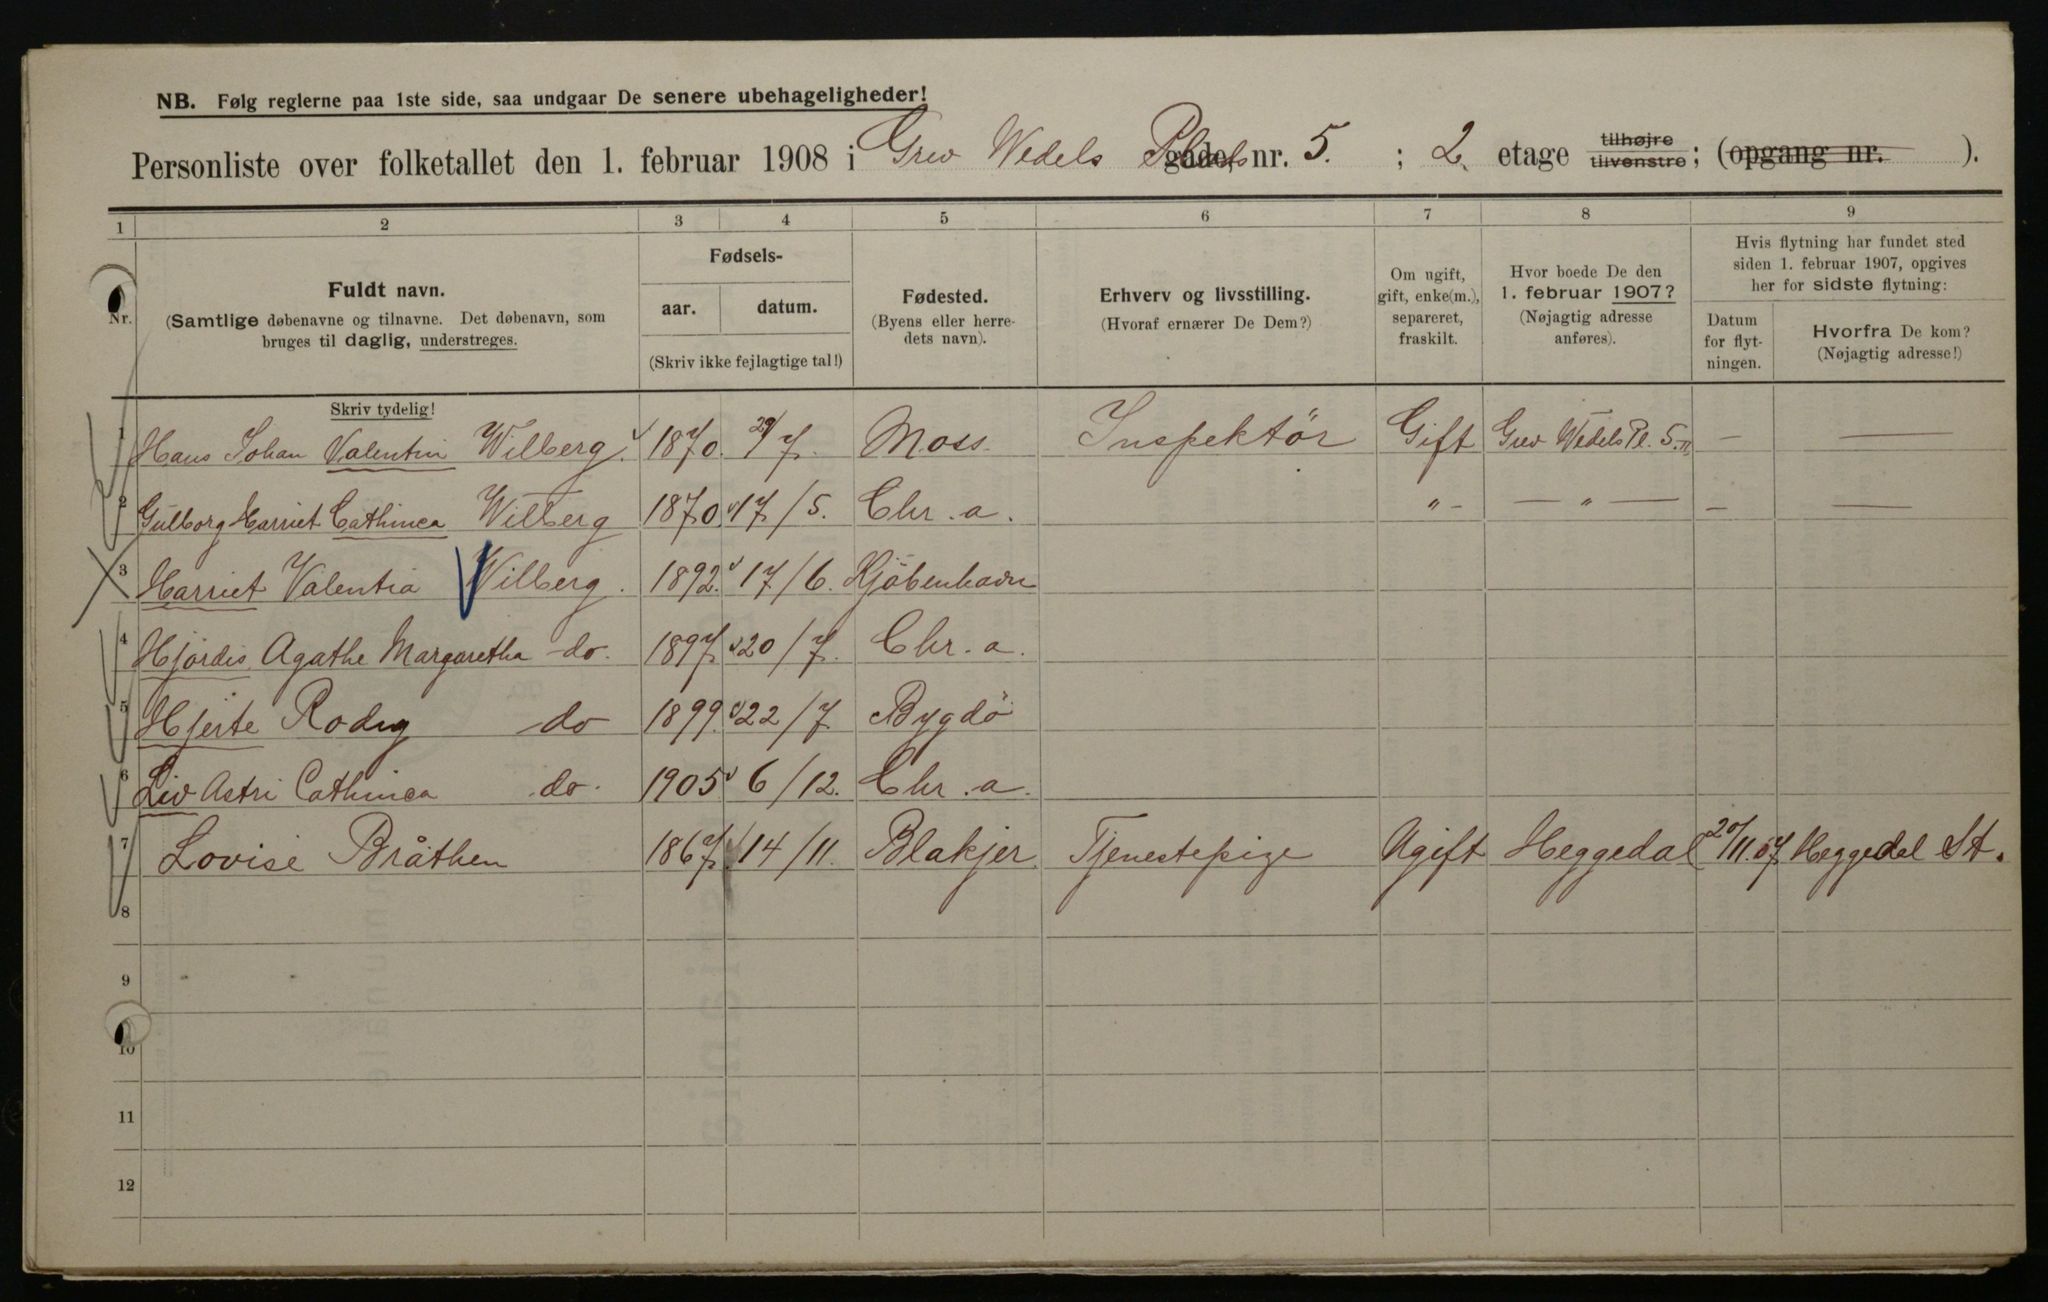 NB. Følg reglerne paa 1ste side, saa undgaar De senere ubehageligheder!
Personliste over folketallet den 1. februar 1908 i Grev Wedels Plads gade, nr. 5. ; 2. etage tilhøjre tilvenstre ; (opgang nr. ).
1 2 3 4 5 6 7 8 9
Nr.
Fuldt navn.
(Samtlige døbenavne og tilnavne. Det døbenavn, som
bruges til daglig, understreges.
Skriv tydelig!
Fødsels-
aar. datum.
(Skriv ikke fejlagtige tal!)
Fødested.
(Byens eller herre-
dets navn).
Erhverv og livsstilling.
(Hvoraf ernærer De Dem?)
Om ugift,
gift, enke(m.),
separeret,
fraskilt.
Hvor boede De den
1. februar 1907?
(Nøjagtig adresse
anføres).
Hvis flytning har fundet sted
siden 1. februar 1907, opgives
her for sidste flytning:
Datum
for flyt-
ningen.
Hvorfra De kom?
(Nøjagtig adresse!)
1 Hans Johan Valentin Wilberg. 1870. 29/7. Moss. Inspektör Gift Grev Wedels Pl. 5. II — —
2 Gulborg Harriet Cathinca Wilberg 1870 17/5. Chr.a. " - — " — — —
3 Harriet Valentia Wilberg. 1892. 17/6. Kjöbenhavn
4 Hjördis Agathe Margaretha do. 1897 20/7. Chr.a.
5 Hjerte Rodny do 1899. 22/7. Bygdö
6 Liv Astri Cathinca do. 1905 6/12. Chr.a.
7 Lovise Bråthen 1867. 14/11. Blakjer Tjenestepige Ugift Heggedal 20/11.07 Heggedal St.
8
9
10
11
12